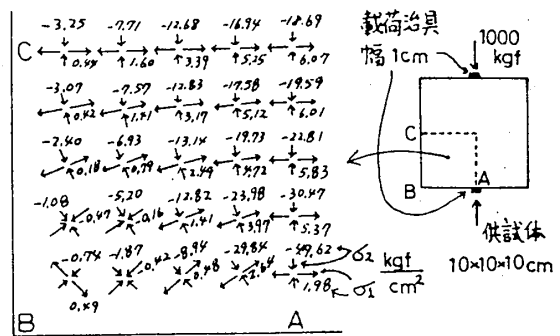 -3.25 -7.71 -12.68 -16.94 -18.69
C 0.44 1.60 3.39 5.25 6.07
-3.07 -7.57 -12.83 -17.58 -19.59
0.42 1.41 3.17 5.12 6.01
-2.40 -6.93 -13.14 -19.73 -22.81
0.18 0.79 2.49 4.72 5.83
-1.08 -5.20 -12.82 -23.98 -30.47
0.47 0.16 1.41 3.97 5.37
-0.74 -1.87 -8.94 -29.84 -49.62 σ2
0.49 0.42 0.48 2.64 1.98 σ1
kgf
cm²
B A
載荷治具
幅1cm
1000
kgf
C
B
A
供試体
10×10×10cm